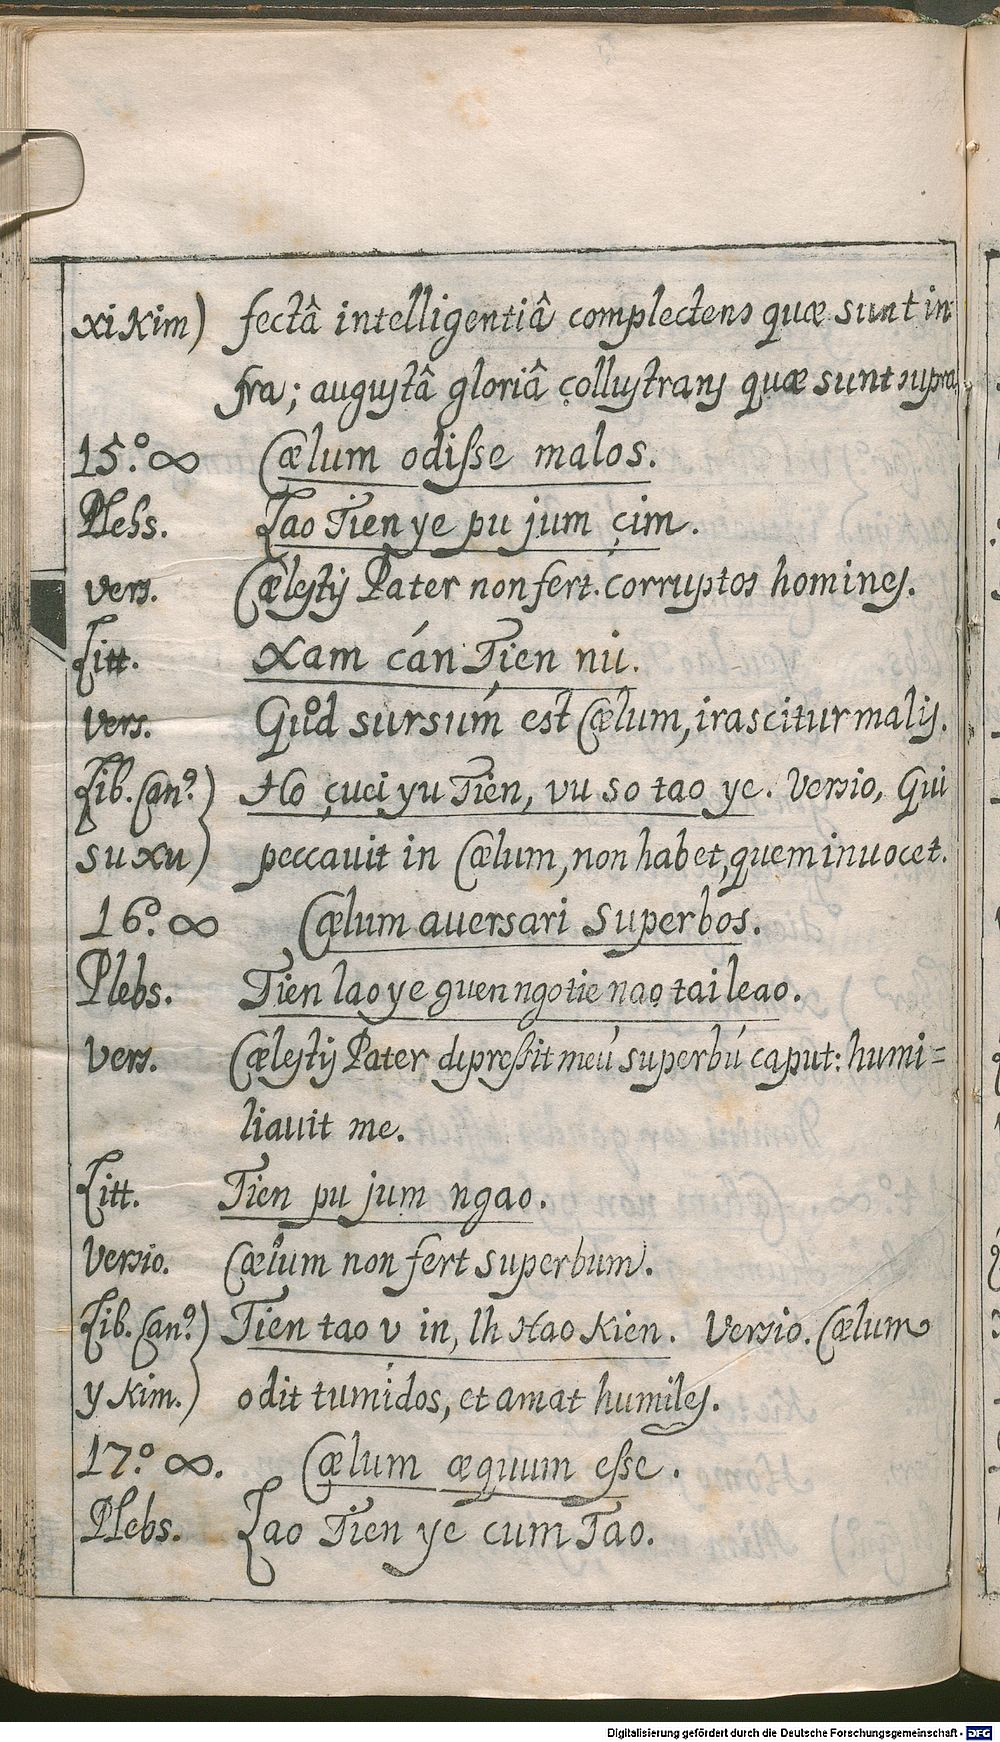 xi Kim) fectâ intelligentiâ complectens quæ sunt in
fra; augustâ gloriâ collustrans quæ sunt supra
15.º ∞ Cælum odisse malos.
Plebs. Lao Tien ye pu jum çim.
vers. Cælestis Pater non fert corruptos homines.
Litt. Xam cán Tien nu.
vers. Quod sursum est Cælum, irascitur malis.
Lib. Can.º) Ho çuei yu Tien, vu so tao ye. Versio, Qui
su xu) peccauit in Cælum, non habet, quem inuocet.
16.º ∞ Cælum auersari superbos.
Plebs. Tien lao ye guen ngo tie nao tai leao.
vers. Cælestis Pater depressit meũ superbũ caput: humi=
liauit me.
Litt. Tien pu jum ngao.
Versio. Cælum non fert superbum.
Lib. Can.º) Tien tao v in, lh Hao Kien. Versio. Cælum
y Kim.) odit tumidos, et amat humiles.
17.º ∞. Cælum æquum esse.
Plebs. Lao Tien ye cum Tao.
Digitalisierung gefördert durch die Deutsche Forschungsgemeinschaft - DFG